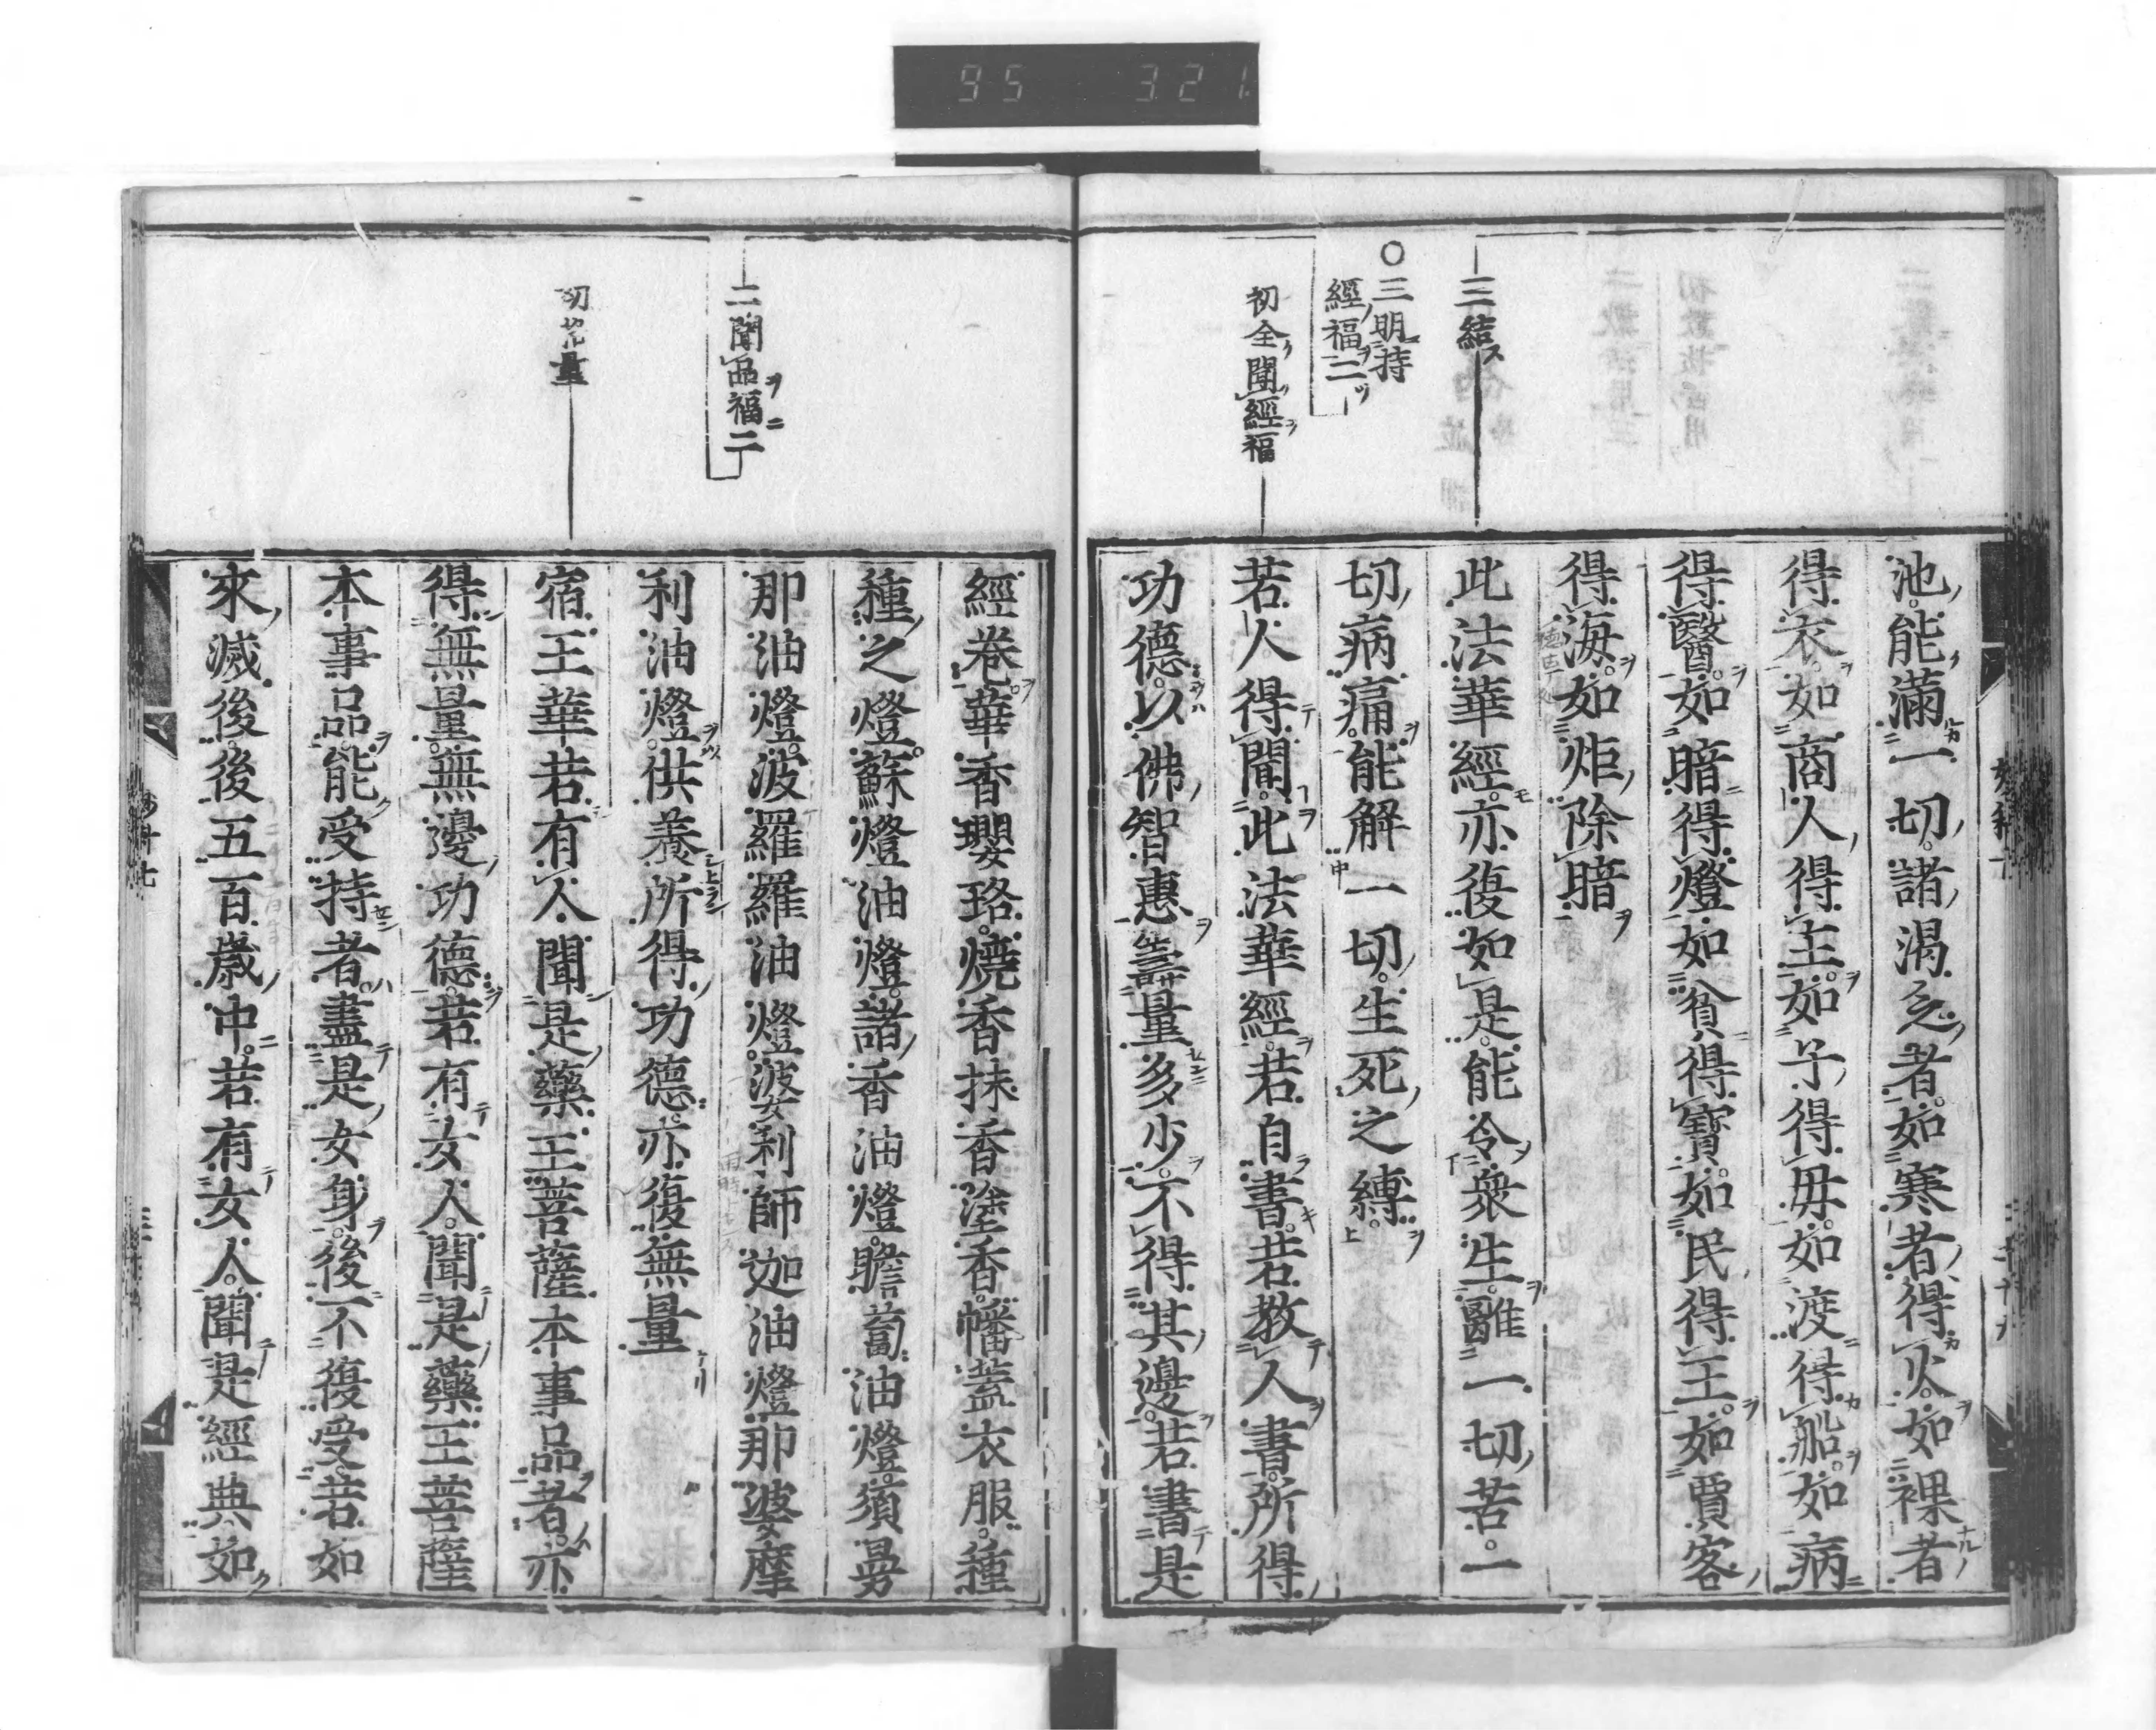 95 321
三結
○三明持
經福二
初全聞經福
池能滿一切諸渴乏者如寒者得火如裸者
得衣如商人得主如子得母如渡得船如病
得醫如暗得燈如貧得寶如民得王如賈客
得海如炬除暗
此法華經亦復如是能令衆生離一切苦一
切病痛能解一切生死之縛
若人得聞此法華經若自書若教人書所得
功德以佛智惠籌量多少不得其邊若書是
二聞品福二
初
量
經卷華香瓔珞燒香抹香塗香幡蓋衣服種
種之燈蘇燈油燈諸香油燈瞻蔔油燈須曼
那油燈波羅羅油燈婆利師迦油燈那婆摩
利油燈供養所得功德亦復無量
宿王華若有人聞是藥王菩薩本事品者亦
得無量無邊功德若有女人聞是藥王菩薩
本事品能受持者盡是女身後不復受若如
來滅後後五百歲中若有女人聞是經典如